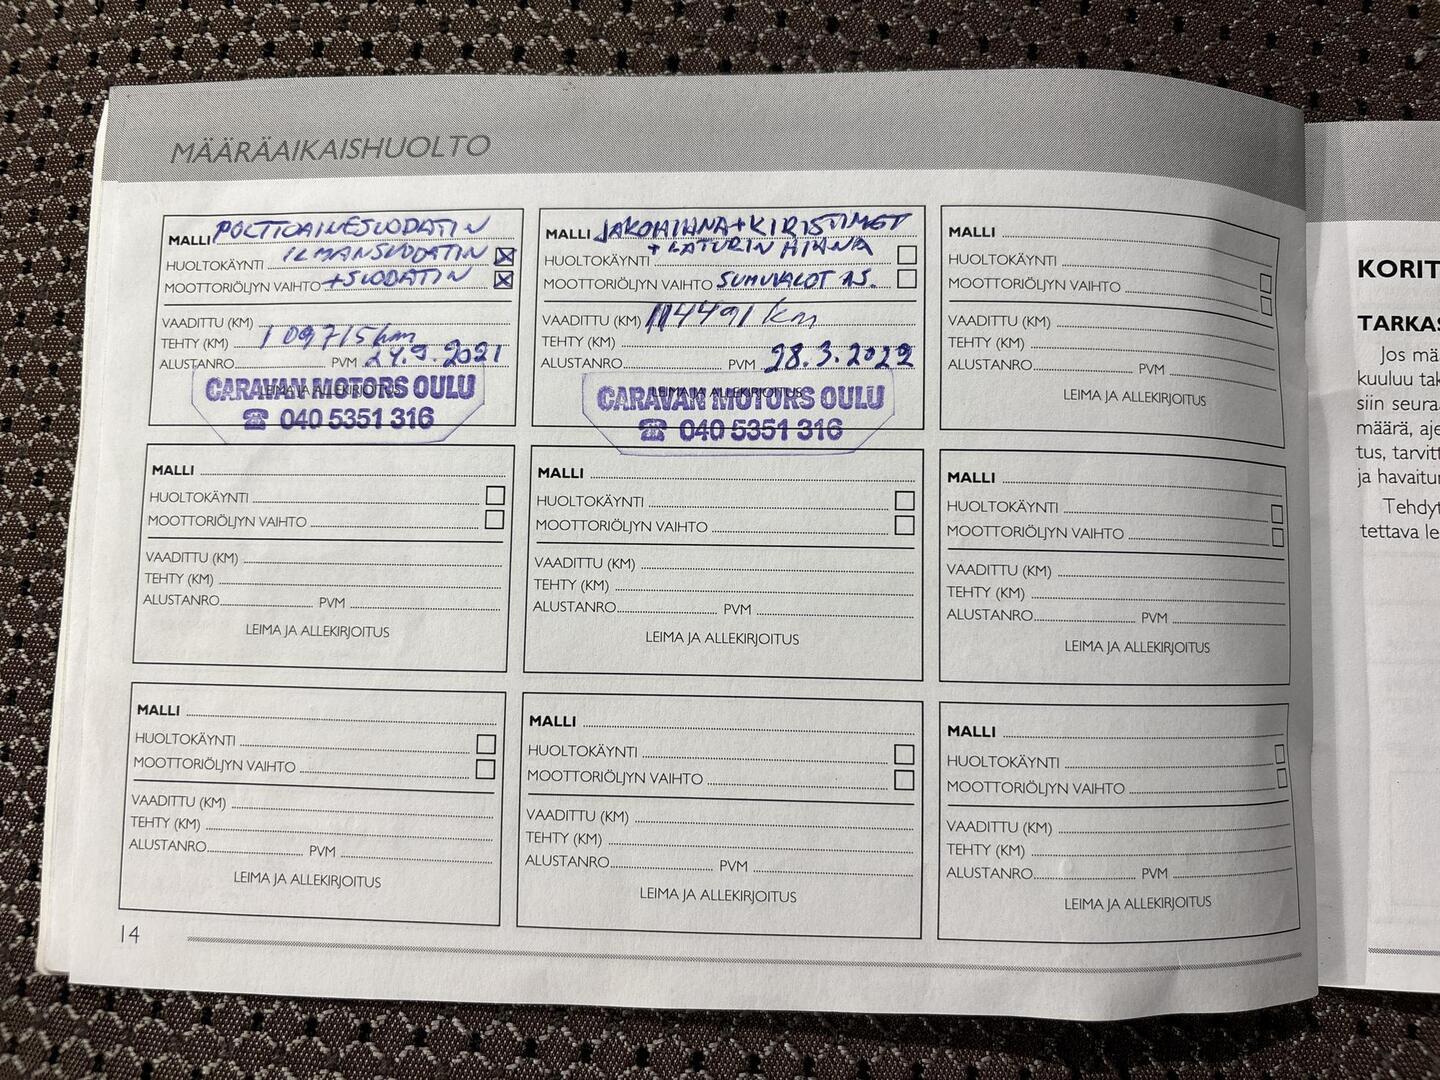 MÄÄRÄAIKAISHUOLTO
MALLI POLTTOAINESUODATIN
ILMANSUODATIN
HUOLTOKÄYNTI
MOOTTORIÖLJYN VAIHTO +SUODATIN
VAADITTU (KM)
TEHTY (KM) 109715km
ALUSTANRO PVM 24.9.2021
LEIMA JA ALLEKIRJOITUS
CARAVAN MOTORS OULU
☎ 040 5351 316
MALLI JAKOHIHNA+KIRISTIMET
+ LATURIN HIHNA
HUOLTOKÄYNTI
MOOTTORIÖLJYN VAIHTO SUMUVALOT AS.
VAADITTU (KM) 114491 km
TEHTY (KM)
ALUSTANRO PVM 28.3.2022
LEIMA JA ALLEKIRJOITUS
CARAVAN MOTORS OULU
☎ 040 5351 316
MALLI
HUOLTOKÄYNTI
MOOTTORIÖLJYN VAIHTO
VAADITTU (KM)
TEHTY (KM)
ALUSTANRO PVM
LEIMA JA ALLEKIRJOITUS
MALLI
HUOLTOKÄYNTI
MOOTTORIÖLJYN VAIHTO
VAADITTU (KM)
TEHTY (KM)
ALUSTANRO PVM
LEIMA JA ALLEKIRJOITUS
MALLI
HUOLTOKÄYNTI
MOOTTORIÖLJYN VAIHTO
VAADITTU (KM)
TEHTY (KM)
ALUSTANRO PVM
LEIMA JA ALLEKIRJOITUS
MALLI
HUOLTOKÄYNTI
MOOTTORIÖLJYN VAIHTO
VAADITTU (KM)
TEHTY (KM)
ALUSTANRO PVM
LEIMA JA ALLEKIRJOITUS
MALLI
HUOLTOKÄYNTI
MOOTTORIÖLJYN VAIHTO
VAADITTU (KM)
TEHTY (KM)
ALUSTANRO PVM
LEIMA JA ALLEKIRJOITUS
MALLI
HUOLTOKÄYNTI
MOOTTORIÖLJYN VAIHTO
VAADITTU (KM)
TEHTY (KM)
ALUSTANRO PVM
LEIMA JA ALLEKIRJOITUS
MALLI
HUOLTOKÄYNTI
MOOTTORIÖLJYN VAIHTO
VAADITTU (KM)
TEHTY (KM)
ALUSTANRO PVM
LEIMA JA ALLEKIRJOITUS
14
KORIT
TARKAS
Jos mä
kuuluu tak
siin seura
määrä, aje
tus, tarvitt
ja havaitun
Tehdyt
tettava le